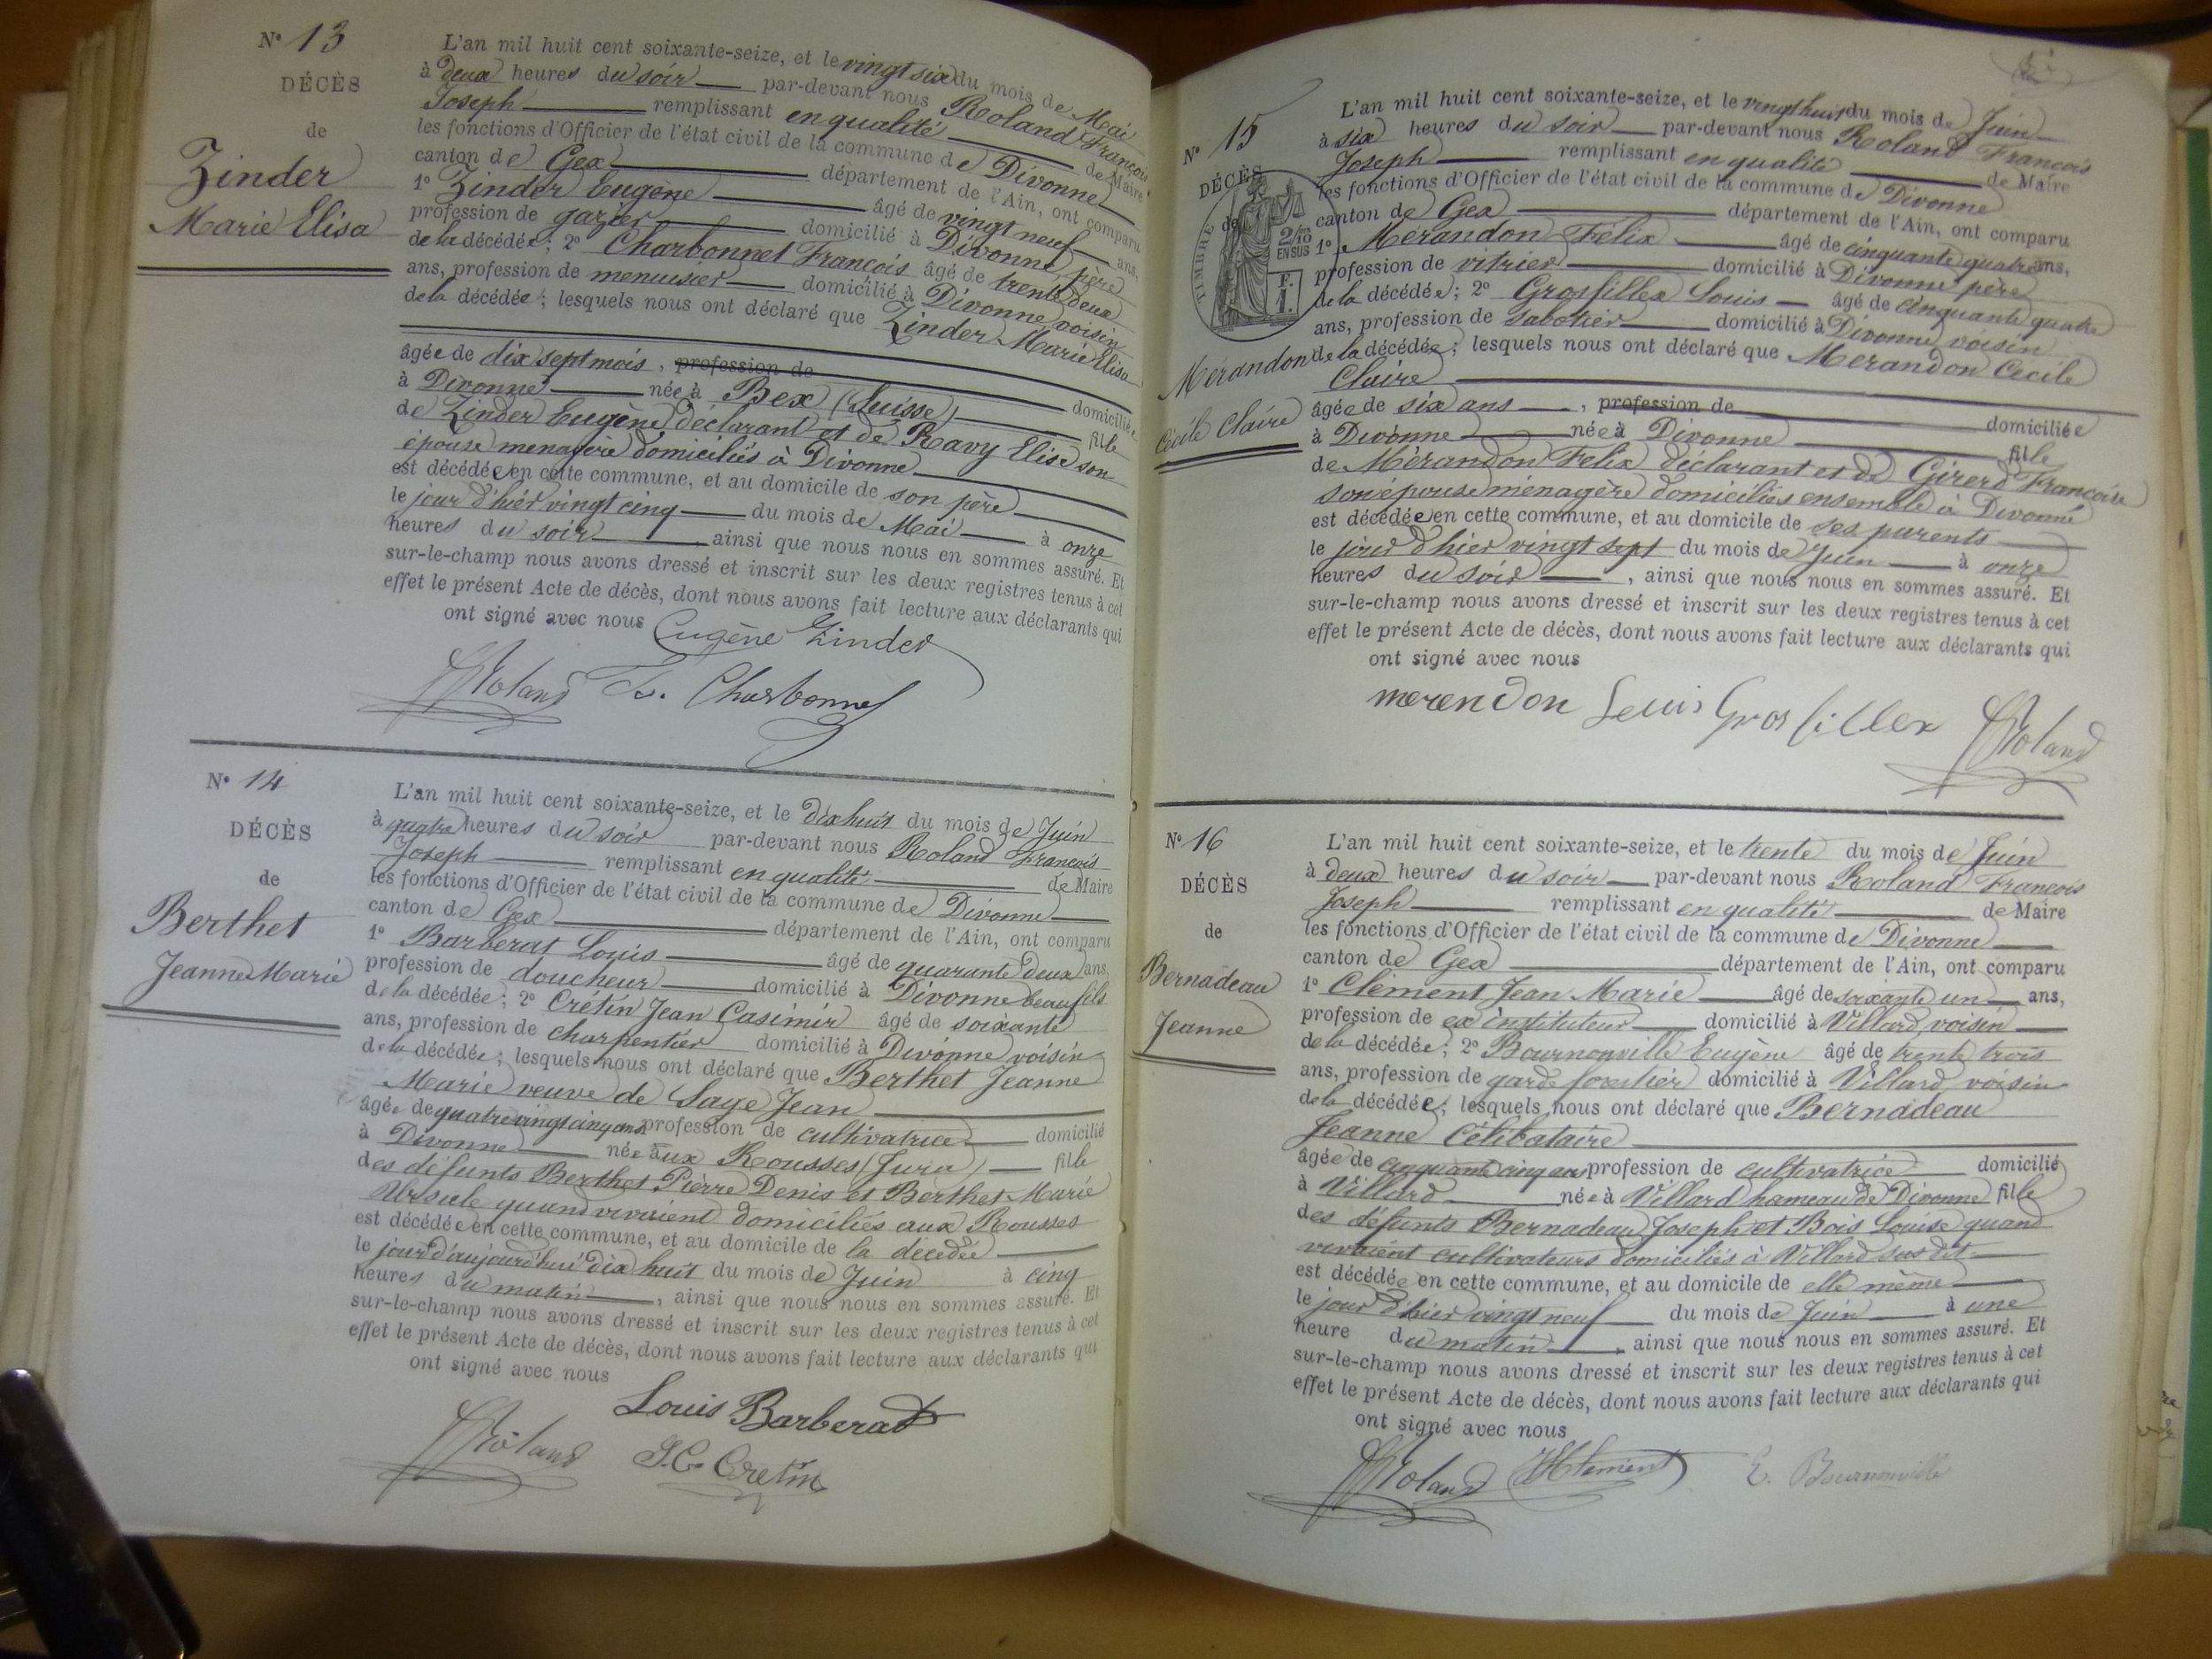 N° 13
DÉCÈS
de
Zinder
Marie Elisa
L'an mil huit cent soixante-seize, et le vingt six du mois de Mai
à deux heures du soir par-devant nous Roland François
Joseph remplissant en qualité de Maire
les fonctions d'Officier de l'état civil de la commune de Divonne
canton de Gex département de l'Ain, ont comparu
1° Zinder Eugène âgé de vingt neuf ans,
profession de gazier domicilié à Divonne père
de la décédée; 2° Charbonnet François âgé de trente deux
ans, profession de menuisier domicilié à Divonne voisin
de la décédée; lesquels nous ont déclaré que Zinder Marie Elisa
âgée de dix sept mois, profession de domiciliée
à Divonne née à Bex (Suisse) fille
de Zinder Eugène déclarant et de Ravy Elise son
épouse menagère domiciliés à Divonne
est décédée en cette commune, et au domicile de son père
le jour d'hier vingt cinq du mois de Mai à onze
heures du soir, ainsi que nous nous en sommes assuré. Et
sur-le-champ nous avons dressé et inscrit sur les deux registres tenus à cet
effet le présent Acte de décès, dont nous avons fait lecture aux déclarants qui
ont signé avec nous Eugène Zinder
Roland F. Charbonnet
N° 14
DÉCÈS
de
Berthet
Jeanne Marie
L'an mil huit cent soixante-seize, et le dix huit du mois de Juin
à quatre heures du soir par-devant nous Roland François
Joseph remplissant en qualité de Maire
les fonctions d'Officier de l'état civil de la commune de Divonne
canton de Gex département de l'Ain, ont comparu
1° Barberat Louis âgé de quarante deux ans,
profession de doucheur domicilié à Divonne beau fils
de la décédée; 2° Crétin Jean Casimir âgé de soixante
ans, profession de charpentier domicilié à Divonne voisin
de la décédée; lesquels nous ont déclaré que Berthet Jeanne
Marie veuve de Saye Jean
âgée de quatre vingt cinq ans profession de cultivatrice domicilié
à Divonne née aux Rousses (Jura) fille
des défunts Berthet Pierre Denis et Berthet Marie
Ursule quand vivaient domiciliés aux Rousses
est décédée en cette commune, et au domicile de la décédée
le jour d'aujourd'hui dix huit du mois de Juin à cinq
heures du matin, ainsi que nous nous en sommes assuré. Et
sur-le-champ nous avons dressé et inscrit sur les deux registres tenus à cet
effet le présent Acte de décès, dont nous avons fait lecture aux déclarants qui
ont signé avec nous
Louis Barberat
Roland J. C. Cretin
N° 15
DÉCÈS
de
TIMBRE
2/10
EN SUS
F.
1.
Merandon
Cécile Claire
L'an mil huit cent soixante-seize, et le vingt huit du mois de Juin
à six heures du soir par-devant nous Roland François
Joseph remplissant en qualité de Maire
les fonctions d'Officier de l'état civil de la commune de Divonne
canton de Gex département de l'Ain, ont comparu
1° Merandon Félix âgé de cinquante quatre ans,
profession de vitrier domicilié à Divonne père
de la décédée; 2° Grosfillex Louis âgé de cinquante quatre
ans, profession de sabotier domicilié à Divonne voisin
de la décédée; lesquels nous ont déclaré que Merandon Cecile
Claire
âgée de six ans, profession de domiciliée
à Divonne née à Divonne fille
de Mérandon Felix déclarant et de Girerd Françoise
son épouse ménagère domiciliés ensemble à Divonne
est décédée en cette commune, et au domicile de ses parents
le jour d'hier vingt sept du mois de Juin à onze
heures du soir, ainsi que nous nous en sommes assuré. Et
sur-le-champ nous avons dressé et inscrit sur les deux registres tenus à cet
effet le présent Acte de décès, dont nous avons fait lecture aux déclarants qui
ont signé avec nous
merendon Louis Grosfillex Roland
N° 16
DÉCÈS
de
Bernadeau
Jeanne
L'an mil huit cent soixante-seize, et le trente du mois de Juin
à deux heures du soir par-devant nous Roland François
Joseph remplissant en qualité de Maire
les fonctions d'Officier de l'état civil de la commune de Divonne
canton de Gex département de l'Ain, ont comparu
1° Clément Jean Marie âgé de soixante un ans,
profession de ex instituteur domicilié à Villard voisin
de la décédée; 2° Bournonville Eugène âgé de trente trois
ans, profession de garde forestier domicilié à Villard voisin
de la décédée, lesquels nous ont déclaré que Bernadeau
Jeanne Célibataire
âgée de cinquante cinq ans profession de cultivatrice domicilié
à Villard née à Villard hameau de Divonne fille
des défunts Bernadeau Joseph et Bois Louise quand
vivaient cultivateurs domiciliés à Villard sus dit
est décédée en cette commune, et au domicile de elle même
le jour d'hier vingt neuf du mois de Juin à une
heure du matin, ainsi que nous nous en sommes assuré. Et
sur-le-champ nous avons dressé et inscrit sur les deux registres tenus à cet
effet le présent Acte de décès, dont nous avons fait lecture aux déclarants qui
ont signé avec nous
Roland Clement E. Bournonville